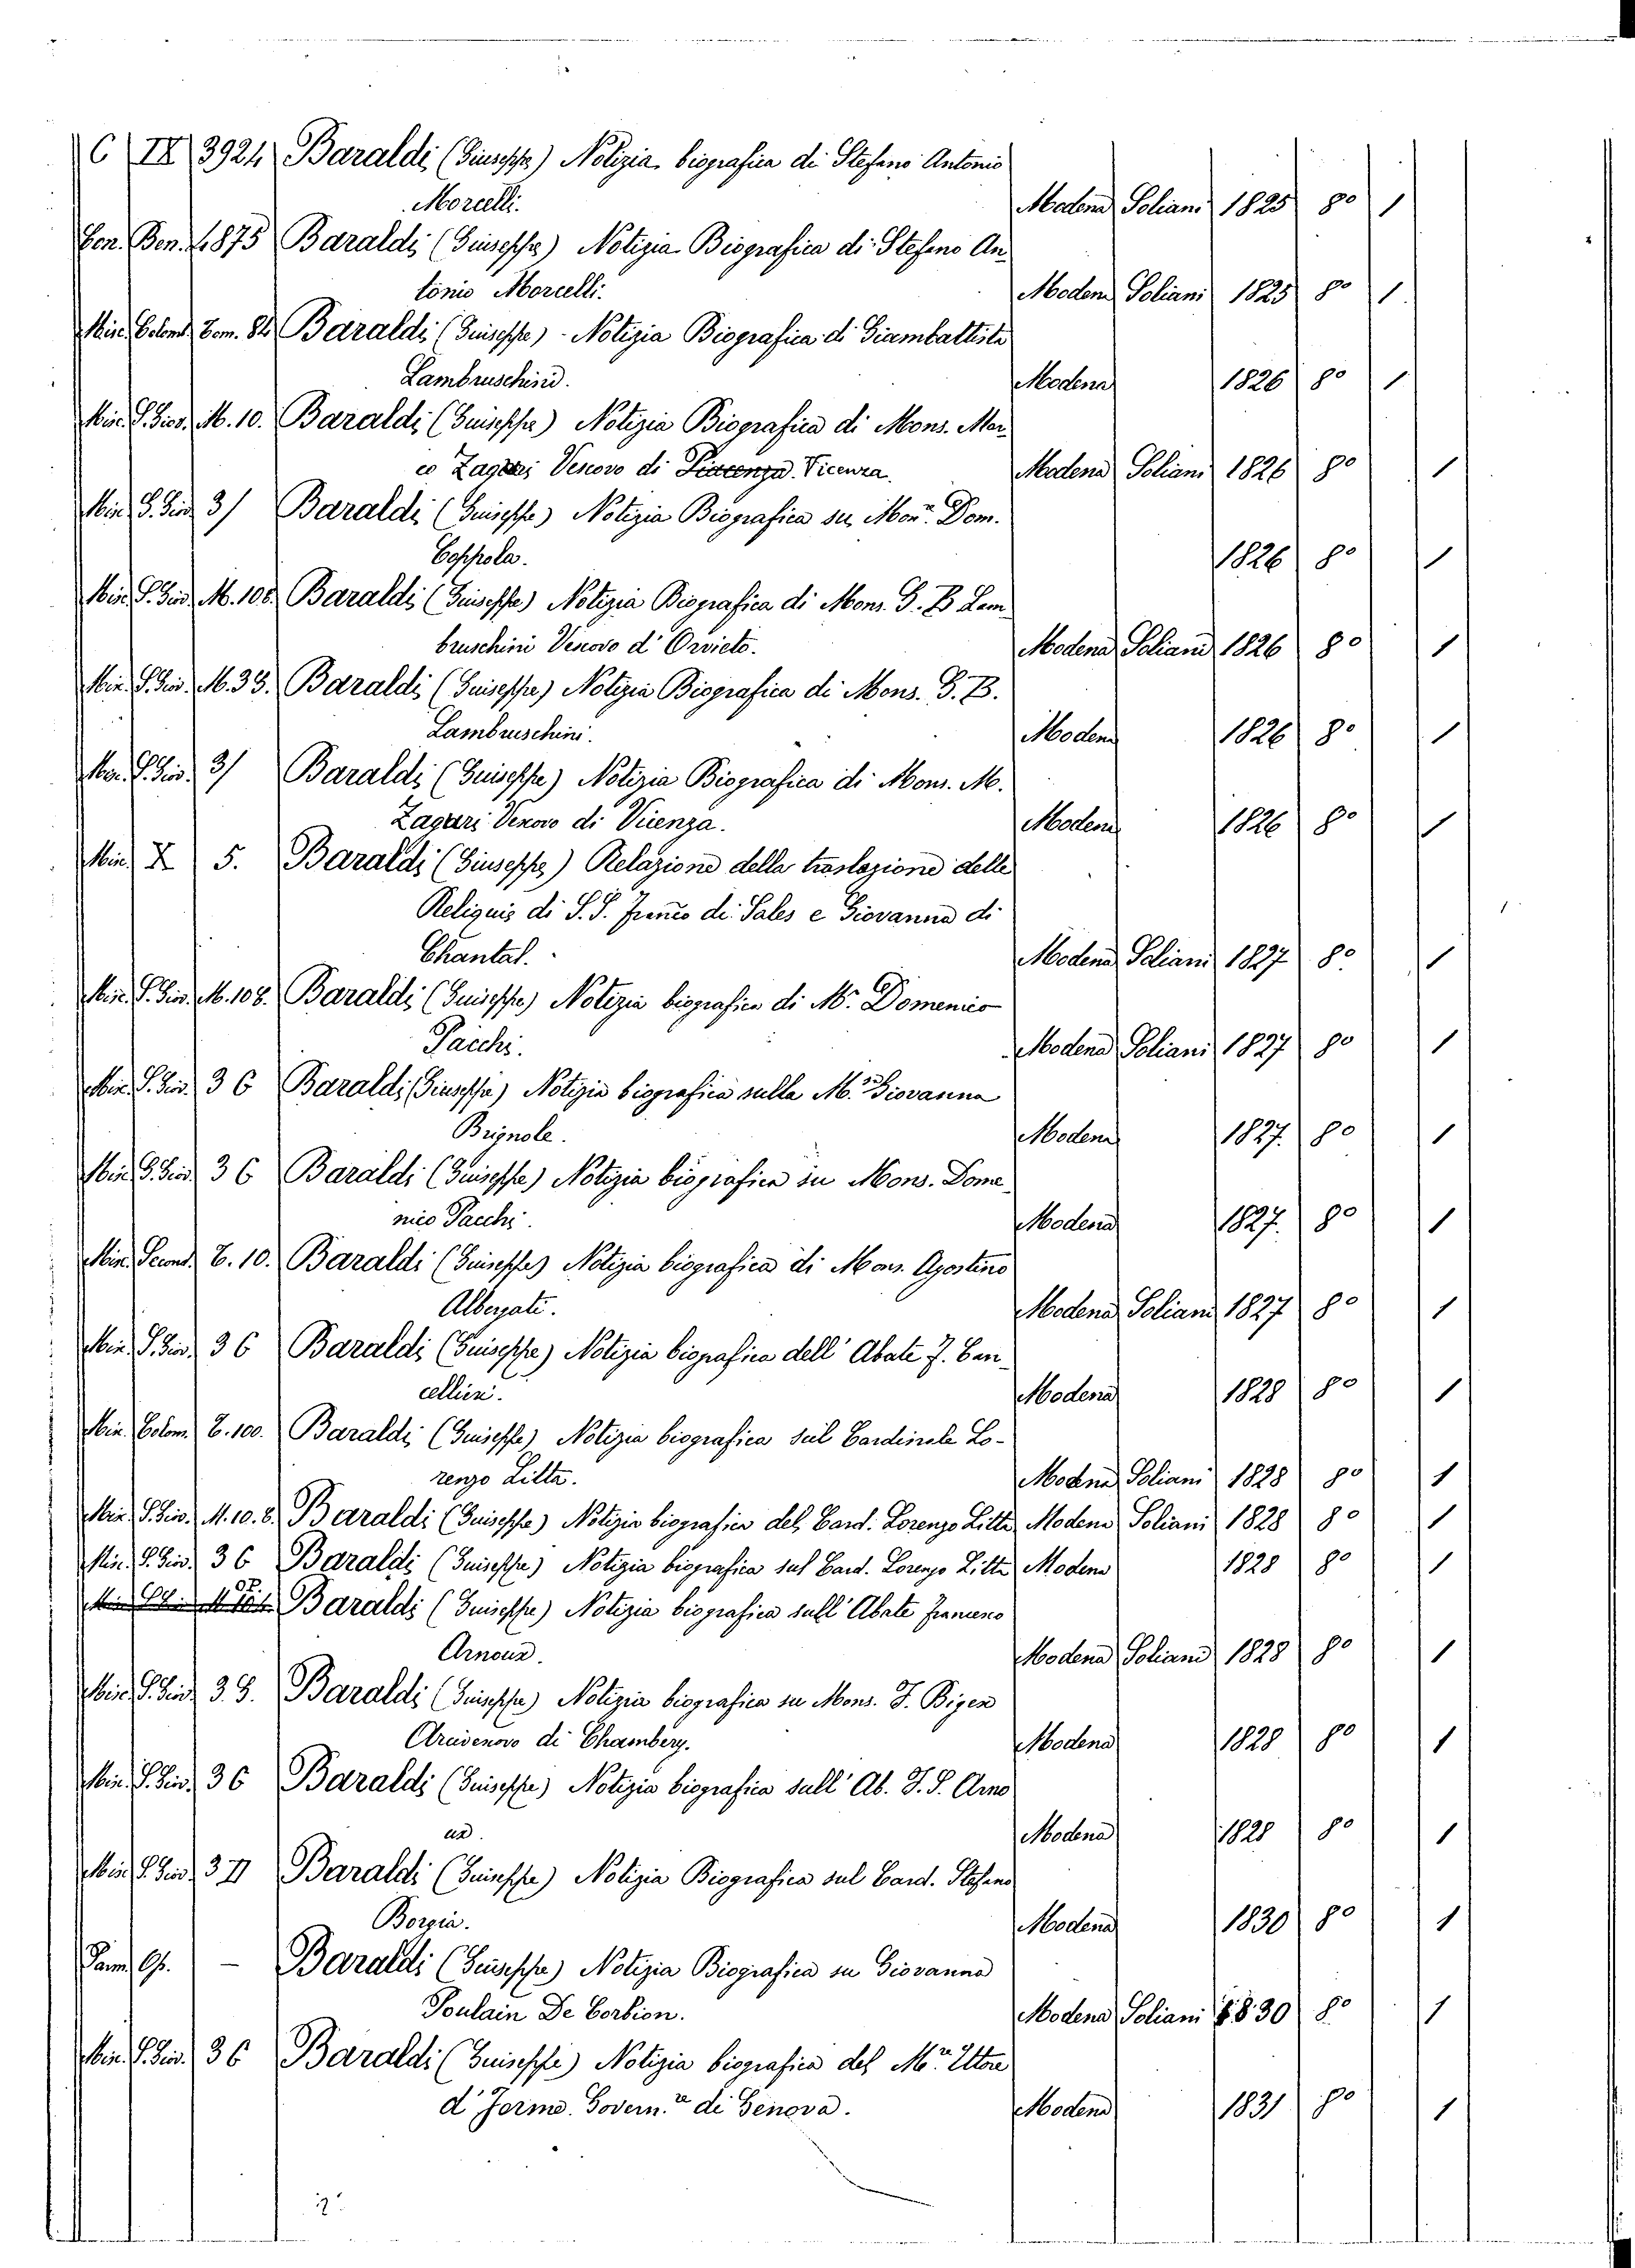 C IX 3924 Baraldi (Giuseppe) Notizia biografica di Stefano Antonio
Morcelli. Modena Soliani 1825 8º 1
Con. Ben. 4875 Baraldi (Giuseppe) Notizia Biografica di Stefano An-
tonio Morcelli. Modena Soliani 1825 8º 1
Mis. Colomb. Com. 82 Baraldi (Giuseppe) - Notizia Biografica di Giambattista
Lambruschini. Modena 1826 8º 1
Mis. S. Gio. M. 10. Baraldi (Giuseppe) Notizia Biografica di Mons. Mar-
co Zaguri Vescovo di Piacenza. Vicenza. Modena Soliani 1826 8º 1
Mis. S. Gio. 3/ Baraldi (Giuseppe) Notizia Biografica su Monr. Dom.
Coppola. 1826 8º 1
Mis. S. Gio. M. 108. Baraldi (Giuseppe) Notizia Biografica di Mons. G. B Lam
bruschini Vescovo d' Orvieto. Modena Soliani 1826 8º 1
Mis. S. Gio. M. 33. Baraldi (Giuseppe) Notizia Biografica di Mons. G. B.
Lambruschini. Modena 1826 8º 1
Mis. S. Gio. 3/ Baraldi (Giuseppe) Notizia Biografica di Mons. M.
Zaguri Vescovo di Vicenza. Modena 1826 8º 1
Mis. X 5. Baraldi (Giuseppe) Relazione della traslazione delle
Reliquie di S. S. Franco di Sales e Giovanna di
Chantal. Modena Soliani 1827 8º 1
Mis. S. Gio. M. 108. Baraldi (Giuseppe) Notizia biografica di Mr. Domenico
Pacchi. Modena Soliani 1827 8º 1
Mis. S. Gio. 36 Baraldi (Giuseppe) Notizia biografica sulla M.sa Giovanna
Brignole. Modena 1827. 8º 1
Mis. S. Gio. 36 Baraldi (Giuseppe) Notizia biografica su Mons. Dome-
nico Pacchi. Modena 1827. 8º 1
Mis. Second. C. 10. Baraldi (Giuseppe) Notizia biografica di Mons. Agostino
Albergati. Modena Soliani 1827 8º 1
Mis. S. Gio. 36 Baraldi (Giuseppe) Notizia biografica dell' Abate F. Can-
cellieri. Modena 1828 8º 1
Mis. Colom. C. 100. Baraldi (Giuseppe) Notizia biografica sul Cardinale Lo-
renzo Litta. Modena Soliani 1828 8º 1
Mis. S. Gio. M. 10. 8. Baraldi (Giuseppe) Notizia biografica del Card. Lorenzo Litta Modena Soliani 1828 8º 1
Mis. S. Gio. 36 Baraldi (Giuseppe) Notizia biografica sul Card. Lorenzo Litta Modena 1828 8º 1
Baraldi (Giuseppe) Notizia biografica sull' Abate Francesco
Arnoux. Modena Soliani 1828 8º 1
Mis. S. Gio. 3. 8. Baraldi (Giuseppe) Notizia biografica su Mons. F. Bigex
Arcivescovo di Chambery. Modena 1828 8º 1
Mis. S. Gio. 36 Baraldi (Giuseppe) Notizia biografica sull' Ab. F. S. Arno
ux. Modena 1828 8º 1
Mis. S. Gio. 3 II Baraldi (Giuseppe) Notizia Biografica sul Card. Stefano
Borgia. Modena 1830 8º 1
Pam. Gr. - Baraldi (Giuseppe) Notizia Biografica su Giovanna
Poulain De Corbion. Modena Soliani 1830 8º 1
Mis. S. Gio. 36 Baraldi (Giuseppe) Notizia biografica del Mse Ettore
d' Jerme. Govern.re di Genova. Modena 1831 8º 1